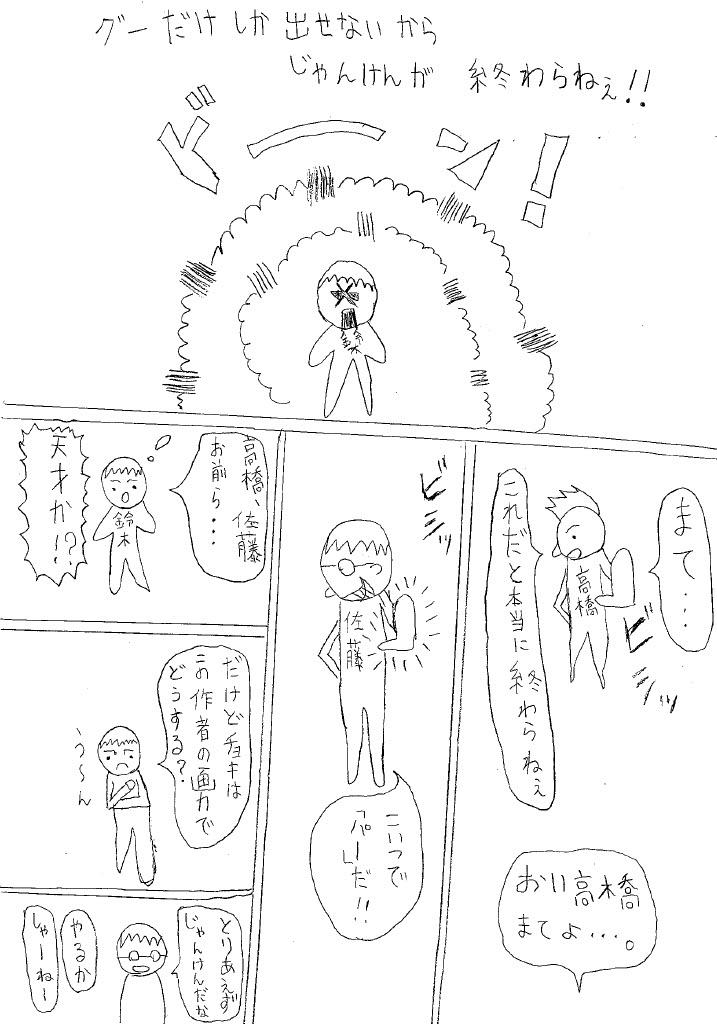 グーだけしか出せないから
じゃんけんが終わらねぇ!!
ドーン!
まて・・・
高橋
ビシッ
これだと本当に終わらねぇ
おい高橋
まてよ・・・。
ビシッ
佐藤
こいつで
「パー」だ!!
高橋、佐藤
お前ら・・・
鈴木
天才か!?
だけどチョキは
この作者の画力で
どうする?
う〜ん
とりあえず
じゃんけんだな
やるか
しゃーねー